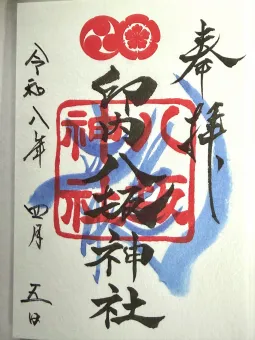 奉拝
印内八坂神社
八坂
神社
令和八年 四月 五日